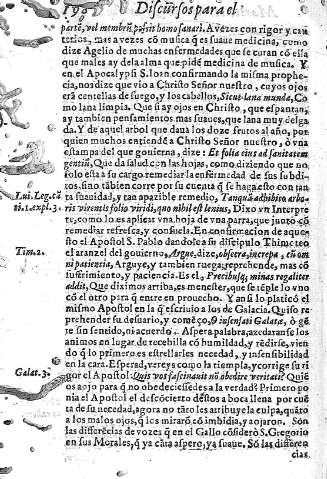 192 Discursos para el
partẽ, vel membrũ possit homo sanari. A vezes con rigor y cau
terios, mas a vezes cõ musica q̃ es suaue medicina, como
dize Agelio de muchas enfermedades que se curan cõ ella
que males ay del alma que pide medicina de musica. Y
en el Apocalypsi S. Ioan confirmando la misma prophe
cia, nos dize que vio a Christo Señor nuestro, cuyos ojos
erã centellas de fuego, y los caballos, Sicut lana munda, Co
mo lana limpia. Que si ay ojos en Christo, que espantan,
ay tambien pensamientos mas suaues, que lana muy delga
da. Y de aquel arbol que daua los doze frutos al año, por
quien muchos entiendẽ a Christo Señor nuestro, o vna
estampa del que gouierna, dize: Et folia eius ad sanitatem
gentiũ, Que da salud con las hojas, como diziendo que no
solo esta a su cargo remediar la enfermedad de sus subdi
tos, sino tãbien corre por su cuenta q̃ se haga esto con tan
ta suauidad, y tan apazible remedio, Tanquã adhibito arbo
Lui. Leg. cõ ris virentis folio viridi, quo nihil est lenius, Dixo vn Interpre
ni. 1. expl. 3. te, como los aplicar vna hoja de vna parra, que junto cõ
remediar refresca, y consuela. En confirmacion de aques
to el Apostol S. Pablo dandole a su discipulo Thimoteo
Tim. 2. el aranzel del gouierno, Argue, dize, obsecra, increpa, cũ om
ni patientia, Arguye, y tambien ruega, reprehende, mas cõ
sufrimiento, y paciencia. Es el, Precibusq; minas regaliter
addit, Que diximos arriba, es menester, que se tẽple lo vno
cõ el otro para q̃ entre en prouecho. Y ansi lo platicò el
mismo Apostol en la q̃ escriuio a los de Galacia. Quiso re
prehender su desuario, y començo, O insensati Galatæ, ò gẽ
te sin sentido, ni acuerdo. Aspera palabra, exedarans e los
animos en lugar de recebilla cõ humildad, y rẽdirse, vien
do q̃ lo primero es estrellarles necedad, y insensibilidad
en la cara. Esperad, vereys como la tiempla, y corrige su ri
Galat. 3. gor el Apostol: Quis vos fascinauit nõ obedire veritati? Quiẽ
os aojo para q̃ no obedeciessedes a la verdad? Primero po
nia el Apostol el descõcierto dẽstos a boca llena por cuẽ
ta de su necedad, agora no tãro les atribuye la culpa, quãto
a los malos ojos, q̃ los mirarõ cõ imbidia, y aojaron. Son
las differẽcias de vozes q̃ en el Gallo cõsiderò S. Gregorio
en sus Morales, q̃ ya cãta aspero, ya suaue. Sõ las differen
cias